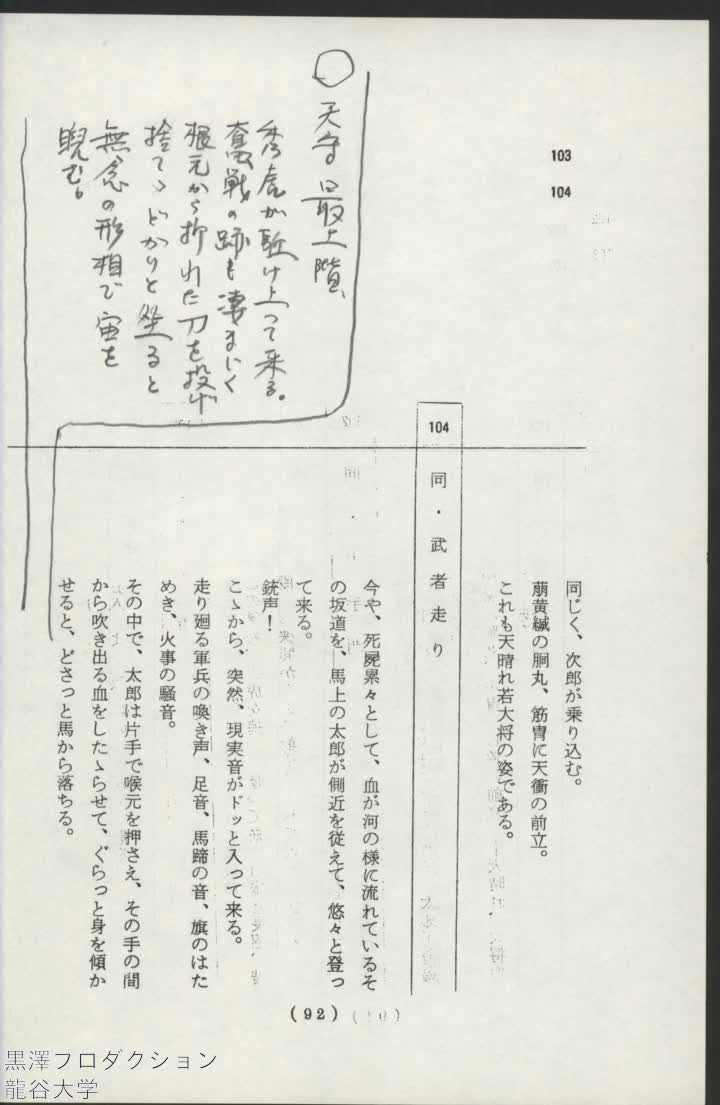 103
104
同じく、次郎が乗り込む。
萠黄縅の胴丸、筋冑に天衝の前立。
これも天晴れ若大将の姿である。
104
同・武者走り
今や、死屍累々として、血が河の様に流れているそ
の坂道を、馬上の太郎が側近を従えて、悠々と登っ
て来る。
銃声！
こゝから、突然、現実音がドッと入って来る。
走り廻る軍兵の喚き声、足音、馬蹄の音、旗のはた
めき、火事の騒音。
その中で、太郎は片手で喉元を押さえ、その手の間
から吹き出る血をしたゝらせて、ぐらっと身を傾か
せると、どさっと馬から落ちる。
○天守最上階
秀虎が駈け上って来る。
奮戦の跡も凄まじく
根元から折れた刀を投げ
捨てゝどかりと坐ると
無念の形相で宙を
睨む。
(92)
黒澤プロダクション
龍谷大学